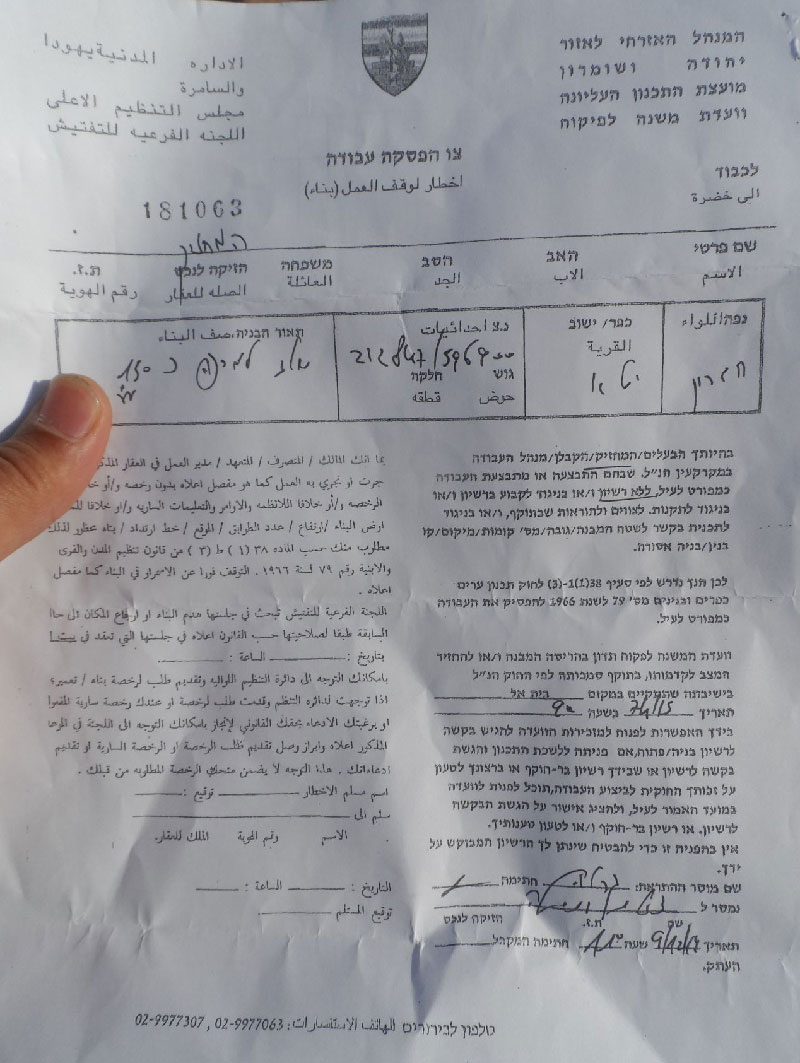 המנהל האזרחי לאזור
יהודה ושומרון
מועצת התכנון העליונה
וועדת משנה לפיקוח
الاداره المدنية يهودا
والسامرة
مجلس التنظيم الاعلى
اللجنه الفرعيه للتفتيش
צו הפסקה עבודה
اخطار لوقف العمل (بناء)
לכבוד
الى حضرة
181063
שם פרטי האב הסב משפחה הזיקה לנכס ת.ז.
الاسم الاب الجد العائلة الصله للعقار رقم الهوية
נפה/اللواء
כפר/ ישוב
القرية
יטא
נ.צ احداثيات
212847/596900
גוש חלקה
حوض قطقه
תאור הבניה.صف البناء
בהיותך הבעלים/המחזיק/הקבלן/מנהל העבודה
במקרקעין הנ"ל. שבהם התבצעה או מתבצעת העבודה
כמפורט לעיל, ללא רשיון ו/או בניגוד לקבוע ברשיון ו/או
בניגוד לתקנות. לצווים ולהוראות שבתוקף, ו/או בניגוד
לתכנית בקשר לשטח המבנה/גובה/מס' קומות/מיקום/קו
בנין/בניה אסורה.
לכן הנך נדרש לפי סעיף 38(1)-(3) לחוק תכנון ערים
כפרים ובנינים מס' 79 לשנת 1966 להפסיק את העבודה
כמפורט לעיל.
וועדת המשנה לפקוח תדון בהריסת המבנה ו/או להחזיר
המצב לקדמותו, בתוקף סמכותה לפי החוק הנ"ל
בישיבתה שתתקיים במקום בית אל
תאריך בשעה
בידך האפשרות לפנות למזכירות הוועדה להגיש בקשה
לרשיון בניה/פתוח,אם פניתה ללשכת התכנון והגשת
בקשה לרשיון או שבידך רשיון בר-תוקף או ברצונך לטעון
על זכותך החוקית לביצוע העבודה,תוכל לפנות לוועדה
במועד האמור לעיל, ולהציג אישור על הגשת הבקשה
לרשיון. או רשיון בר-תוקף ו/או לטעון טענותיך.
אין בהפניה זו כדי להבטיח שינתן לך הרשיון המבוקש על
ידך.
שם מוסר ההתראה: חתימה
נמסר ל
שם ת.ז. הזיקה לנכס
תאריך שעה חתימת המקבל
העתק.
بما انك المالك / المتصرف / المتعهد / مدير العمل في العقار
جرت او تجري به العمل كما هو مفصل اعلاه بدون رخصه و/أو
الرخصه و/أو خلافا للانظمه والاوامر والتعليمات الساريه و/او خلافا
ارض البناء /ارتفاع / عدد الطوابق / الموقع / خط ارتداد / بناء محظور لذلك
مطلوب منك حسب الماده ٣٨ (١) ط (٣) من قانون تنظيم المدن والقرى
والابنية رقم ٧٩ لسنة ١٩٦٦ . التوقف فورا عن الاستمرار في البناء كما مفصل
اعلاه .
اللجنة الفرعية للتفتيش تبحث في جلستها هدم البناء او ارجاع المكان الى
السابقة طبقا لصلاحيتها حسب القانون اعلاه في جلستها التي تعقد في
بتاريخ : الساعة :
بامكانك التوجه الى دائرة التنظيم اللوائيه وتقديم طلب لرخصة بناء / تعمير؛
اذا توجهت لدائره التنظم وقدمت طلب لرخصة او عندك رخصة سارية المفعول
او برغبتك الادعاء بحقك القانوني لإنجاز بامكانك التوجه الى اللجنة في
المذكور اعلاه وابراز وصل تقديم طلب الرخصة او الرخصة السارية او تقديم
ادعاءاتك . هذا التوجه لا يضمن منحك الرخصة المطلوبه من قبلك .
اسم مسلم الاخطار توقيع :
سلم الى
الاسم رقم الهوية الملك للعقار.
التاريخ : الساعة :
توقيع المستلم
טלפון לבירורים الهاتف الاستفسارات: 02-9977063 , 02-9977307